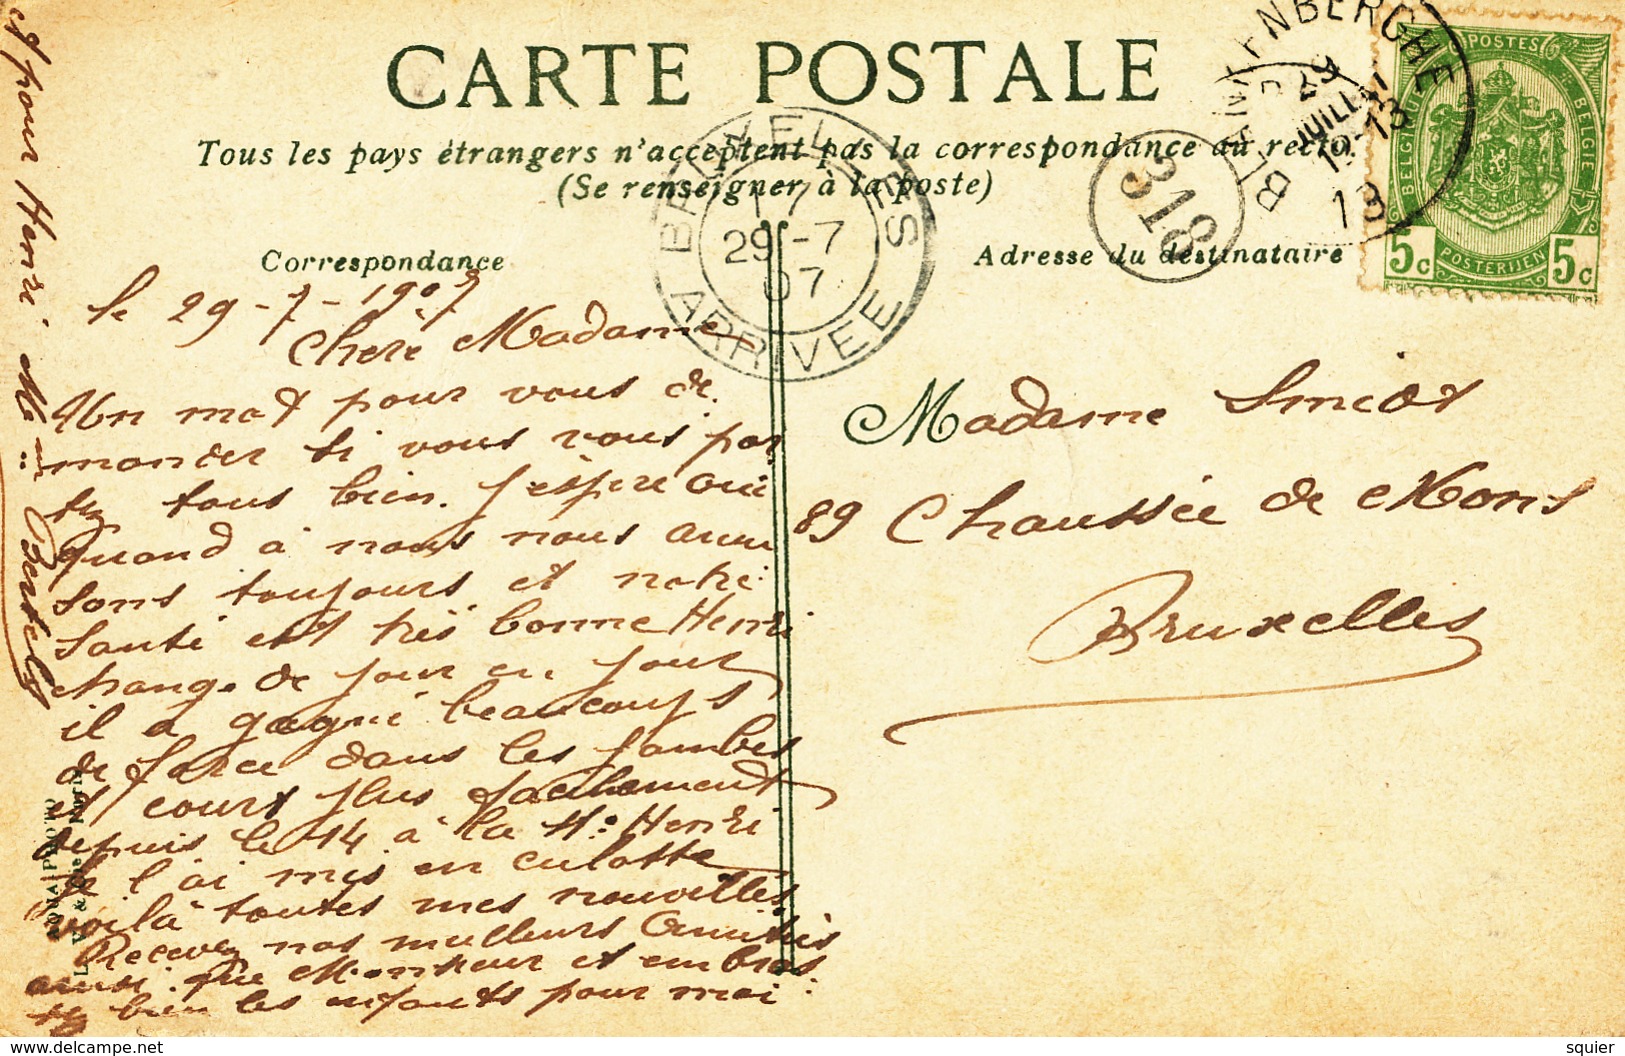 CARTE POSTALE
Tous les pays étrangers n'acceptent pas la correspondance au recto.
(Se renseigner à la poste)
Correspondance
Adresse du destinataire
BLANKENBERGHE
29
JUILLET
12-13
318
BRUXELLES
17
29-7
07
ARRIVEE
POSTES
BELGIQUE
BELGIE
POSTERIJEN
5c
5c
le 29-7-1907
Chère Madame
Un mot pour vous de
mander si vous vous por
tez tous bien. J'espère oui
quand à nous nous amu
sons toujours et notre
santé est très bonne Henri
change de jour en jour
il a gagné beaucoups
de force dans les jambes
et court plus facilement
depuis le 14 à la Hte Henri
je l'ai mis en culotte
voilà toutes mes nouvelles
Recevez nos meilleurs Amitiés
ainsi que Monsieur et embras
sez bien les enfants pour moi
et pour Henri Bertels
Madame Smidt
89 Chaussée de Mons
Bruxelles
AQUA PHOTO
squier
www.delcampe.net